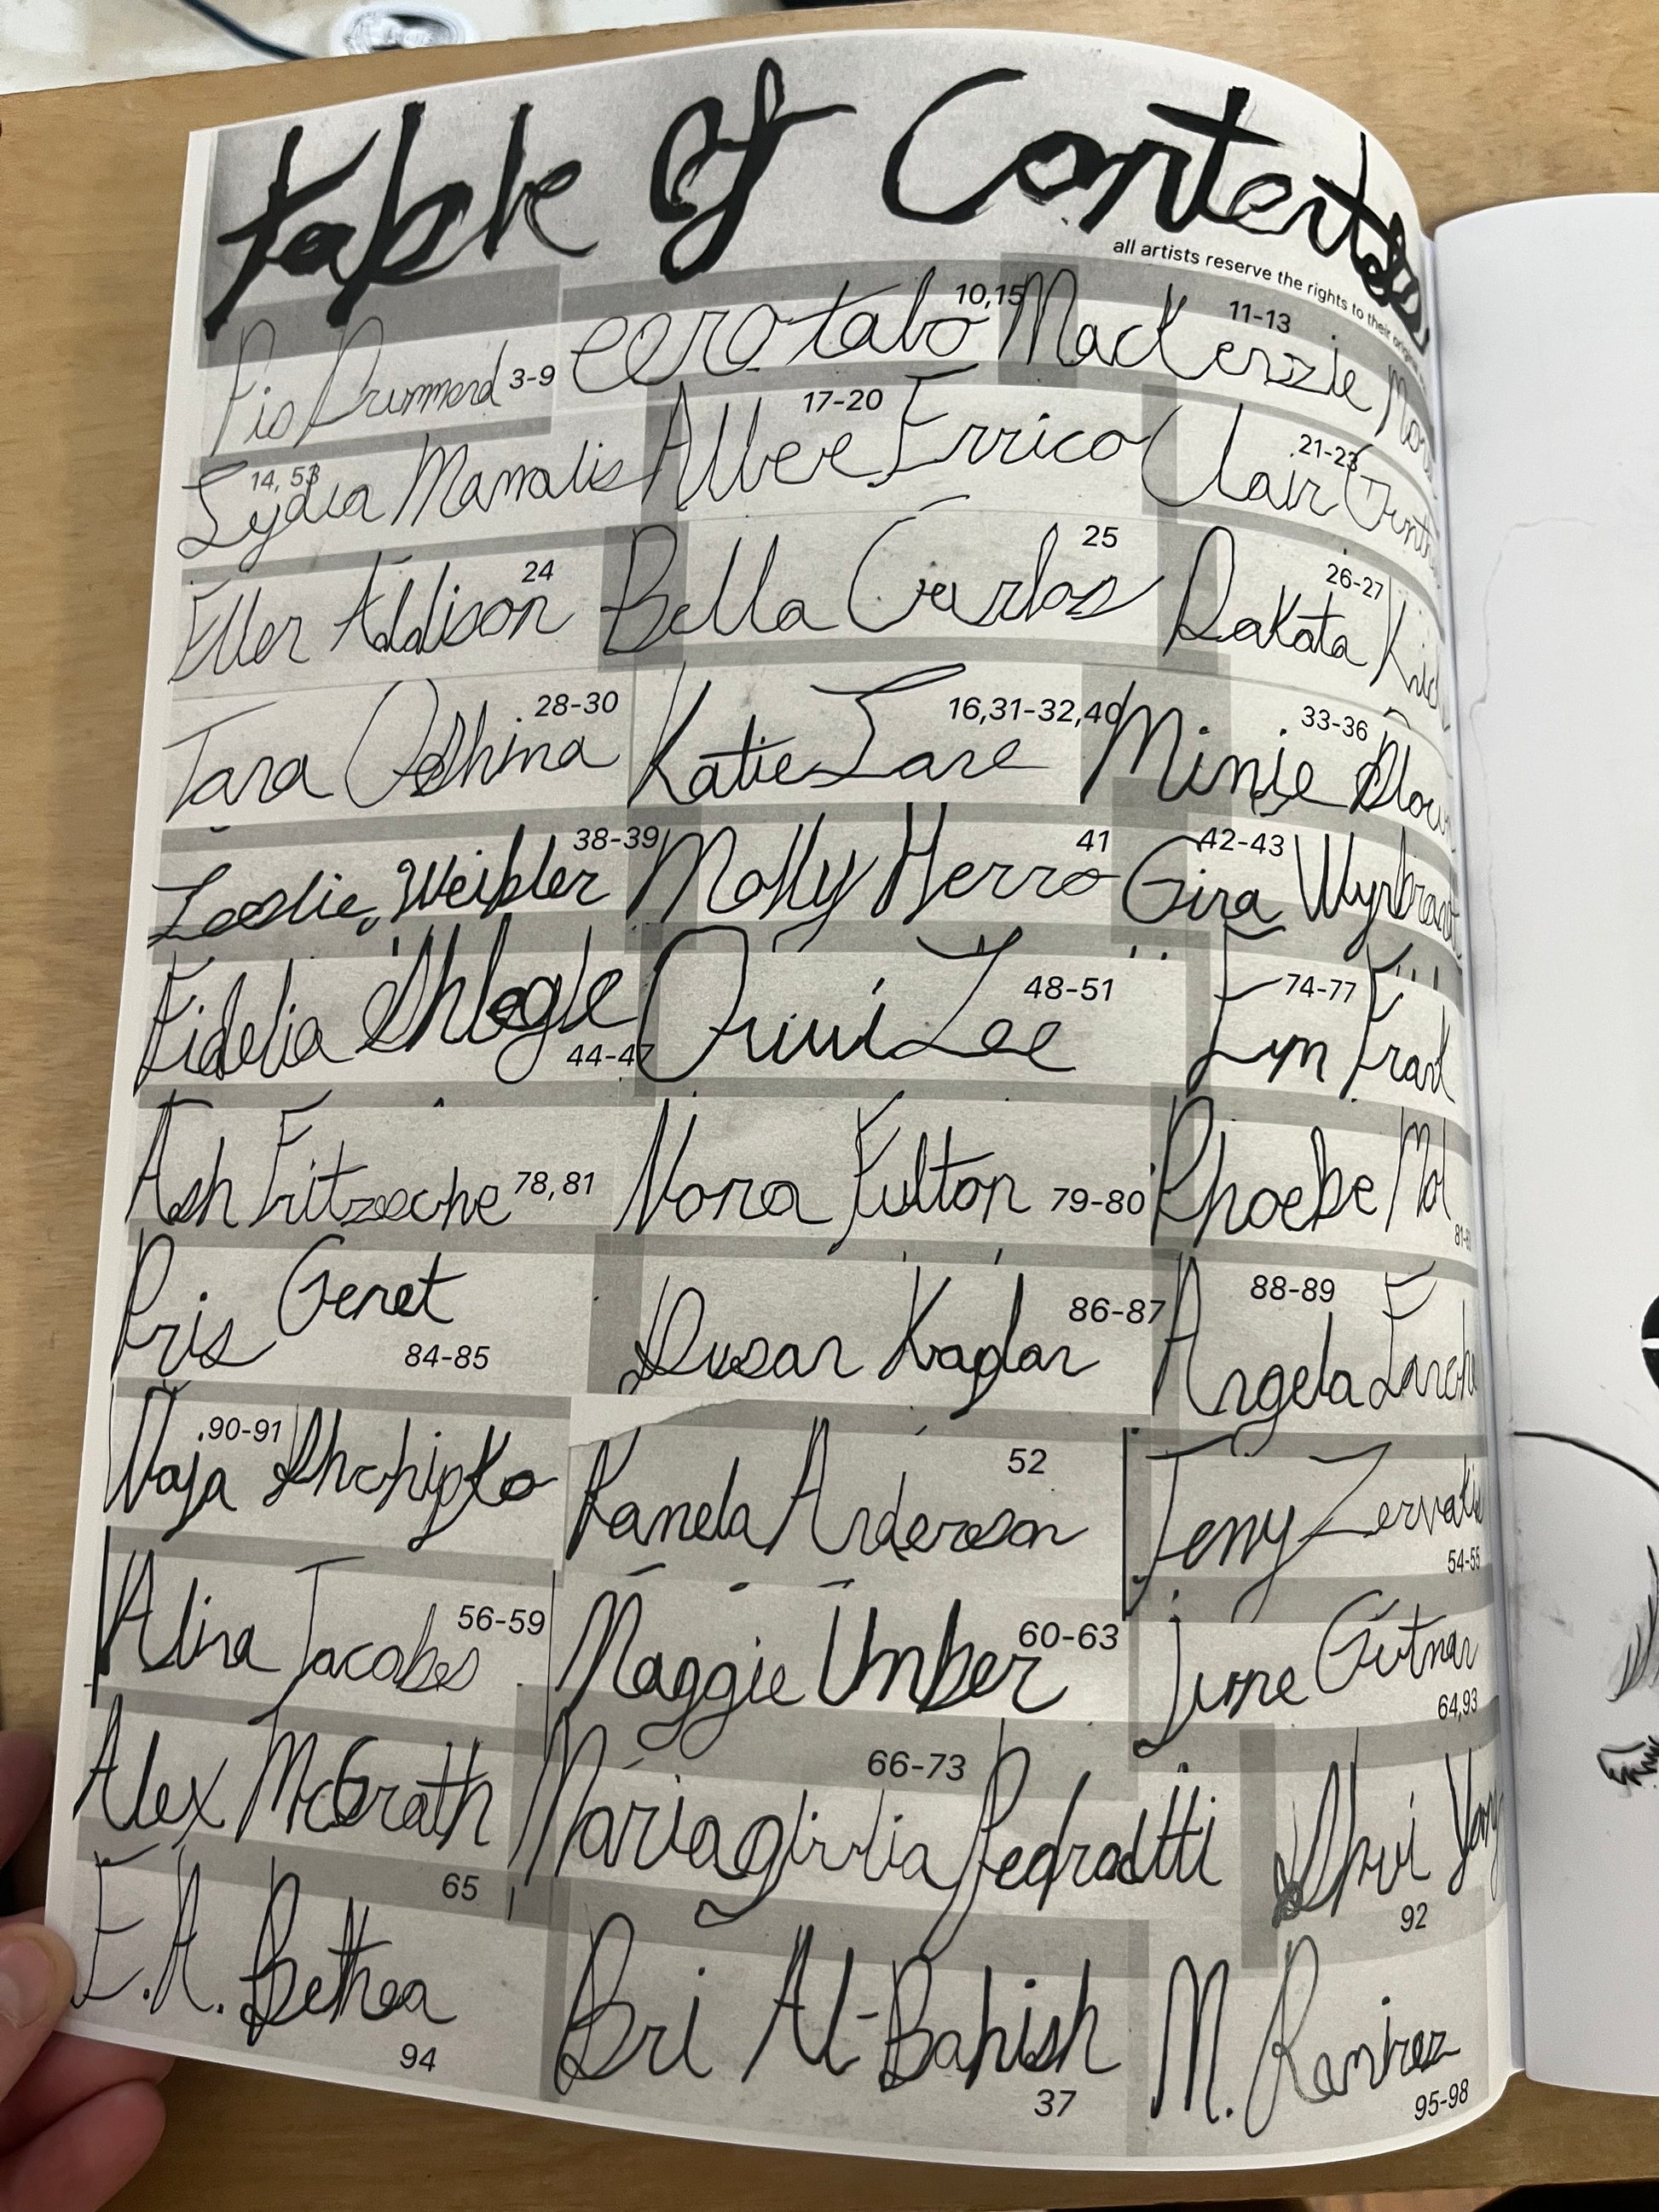 Table of Contents
all artists reserve the rights to their
Pio Drummond 3-9 eero talo 10,15 MacKenzie 11-13
Lydia Mamalis 14, 53 Albee Errico 17-20 Clair 21-23
Eller Addison 24 Bella Carlos 25 Dakota 26-27
Tara Odshina 28-30 Katie Lane 16,31-32,40 Minie 33-36
Leslie Weibler 38-39 Molly Herro 41 Gina 42-43
Fidelia 44-47 Lee 48-51 Eryn 74-77
Ash Fritzsche 78,81 Nona Fulton 79-80 Phoebe
Pris Genet 84-85 Dusan Kaglar 86-87 Angela 88-89
Naja Shchipko 90-91 Kamela Anderson 52 Jenny Zervakis 54-55
Alina Jacobs 56-59 Maggie Umber 60-63 June Gutman 64,93
Alex McGrath 65 Mariagiulia Pedrotti 66-73 Shui Yang 92
E.A. Bethea 94 Bri Al-Bahish 37 M. Ramirez 95-98